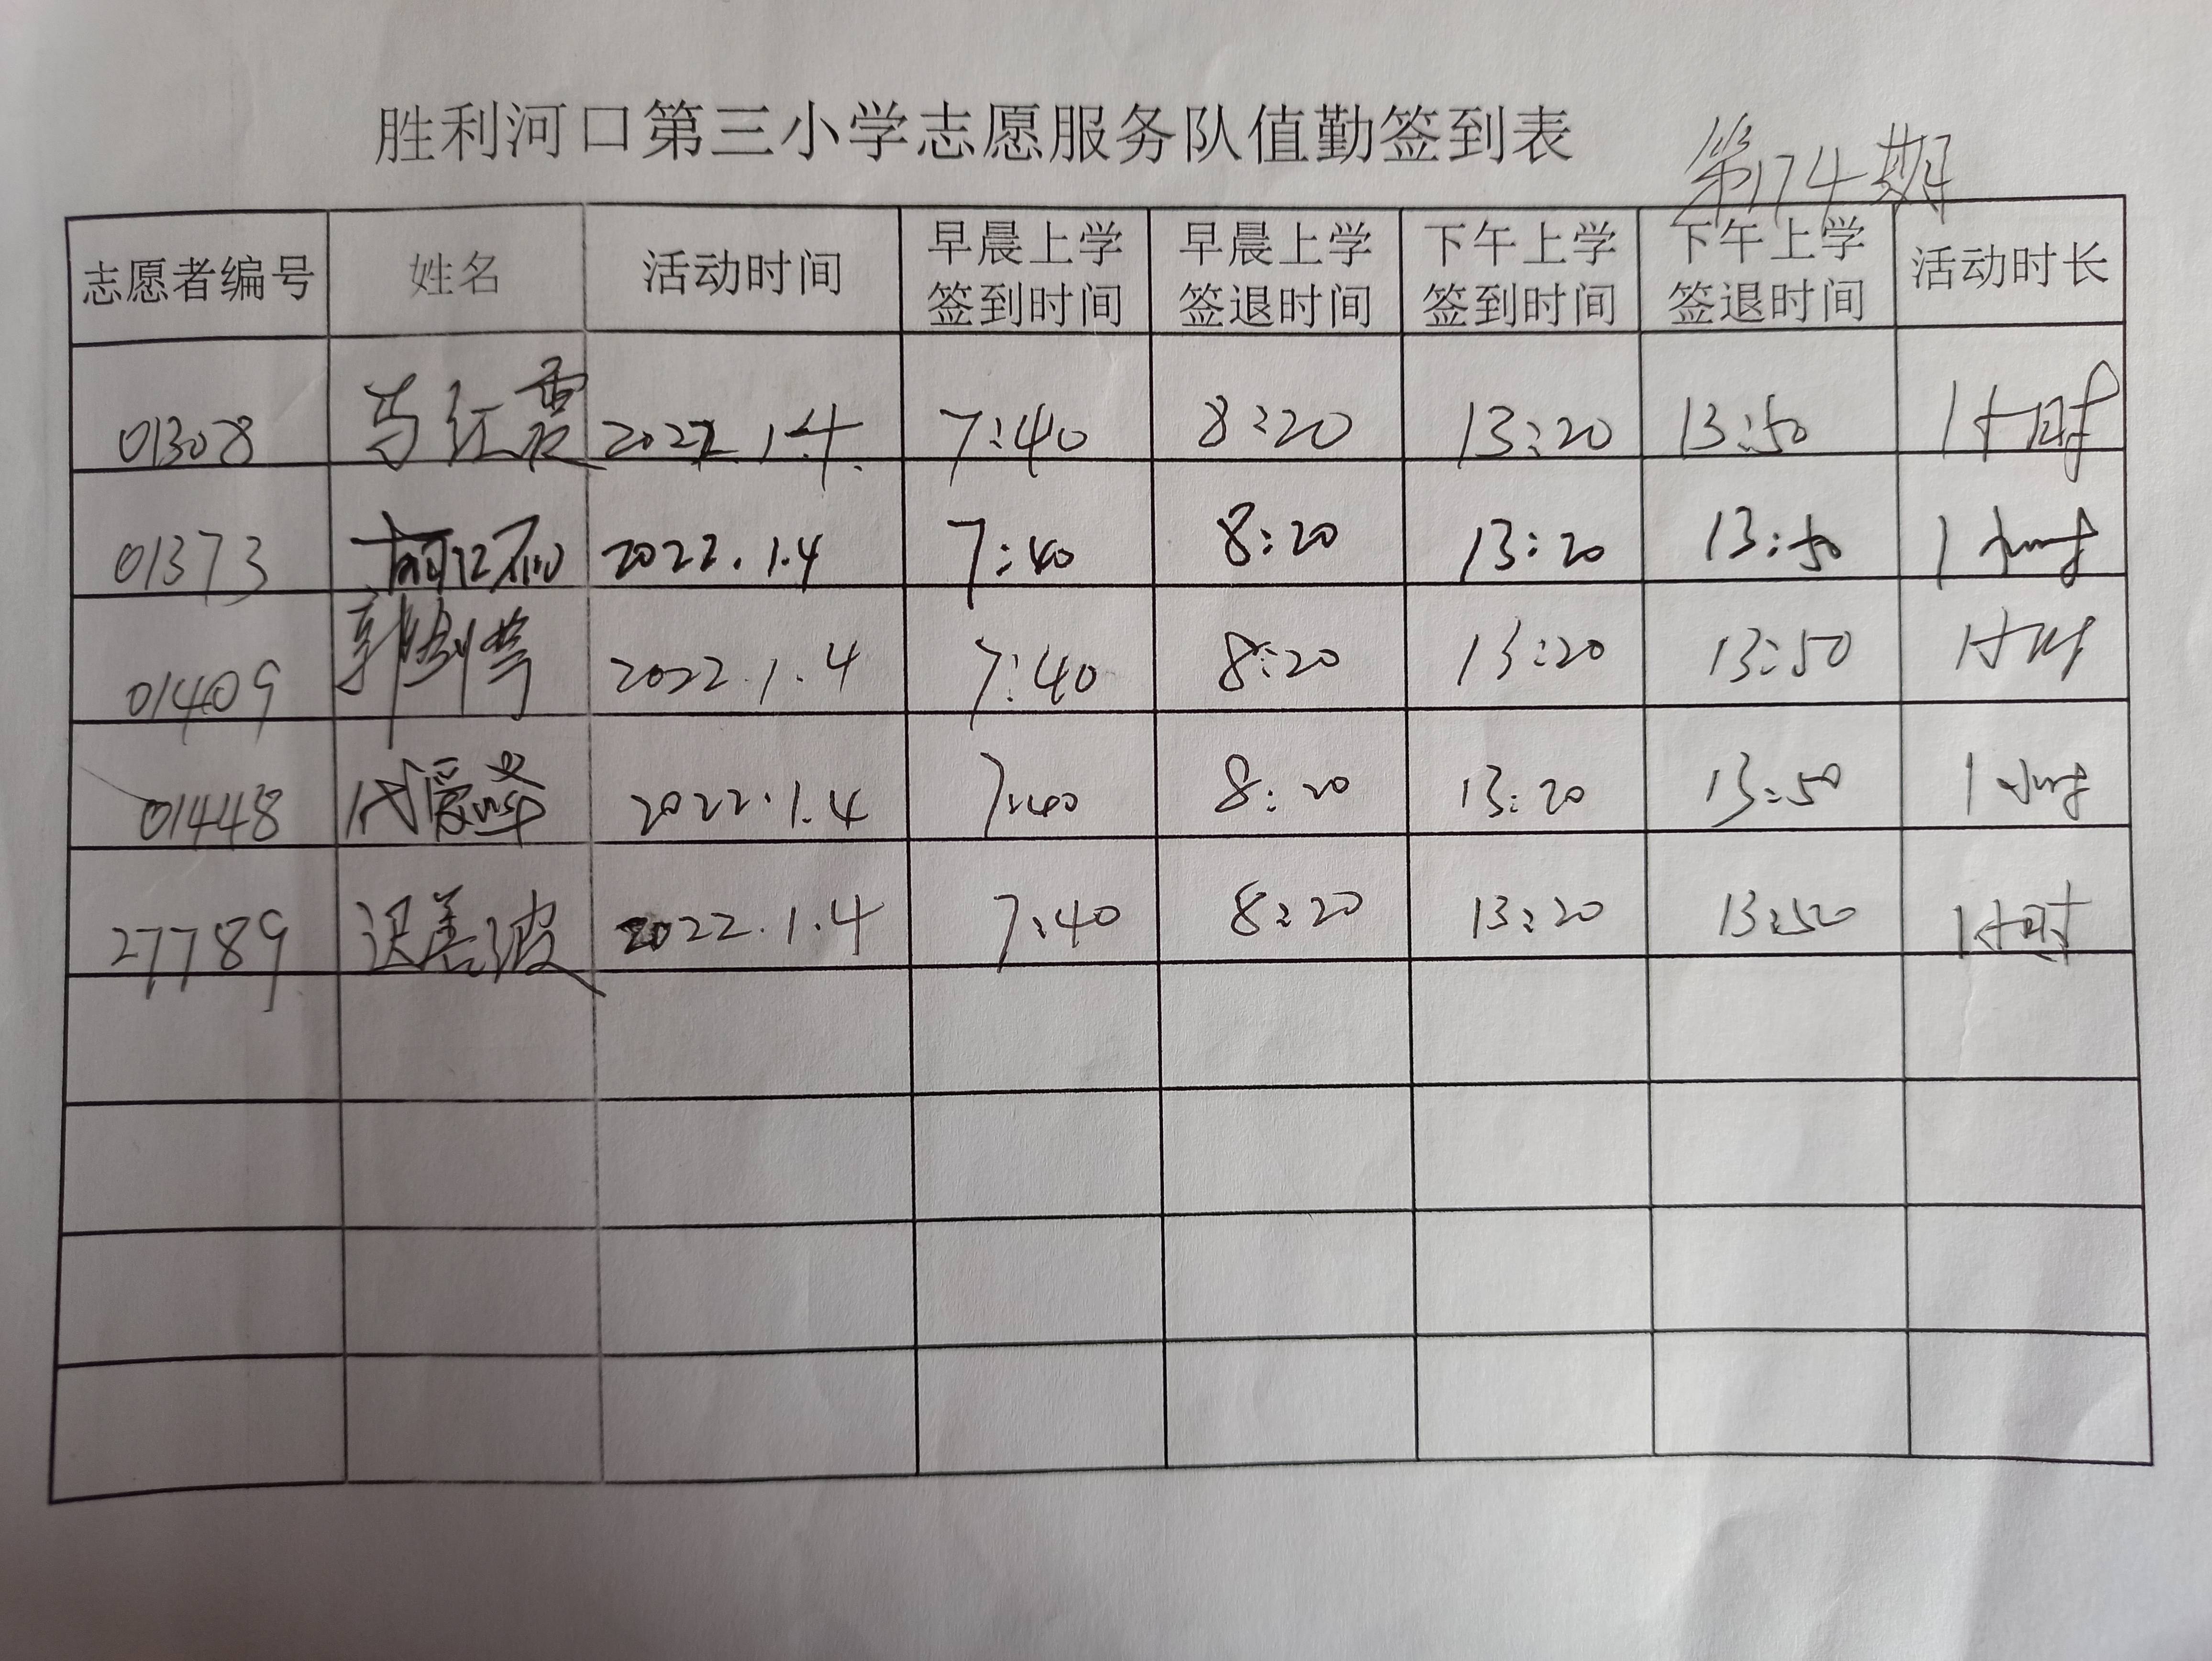 胜利河口第三小学志愿服务队值勤签到表
第174期
志愿者编号 姓名 活动时间 早晨上学签到时间 早晨上学签退时间 下午上学签到时间 下午上学签退时间 活动时长
01308 马红霞 2022.1.4. 7:40 8:20 13:20 13:50 1小时
01373 2022.1.4 7:40 8:20 13:20 13:50 1小时
01409 郭剑苹 2022.1.4 7:40 8:20 13:20 13:50 1小时
01448 代爱华 2022.1.4 7:40 8:20 13:20 13:50 1小时
27789 迟善波 2022.1.4 7:40 8:20 13:20 13:50 1小时